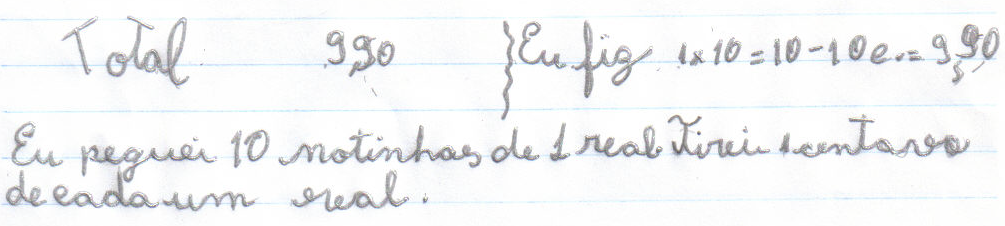 Total 9,90 } Eu fig 1x10=10-10c.=9,90
Eu peguei 10 notinhas de 1 real Tirei 1 centavo
de cada um real.